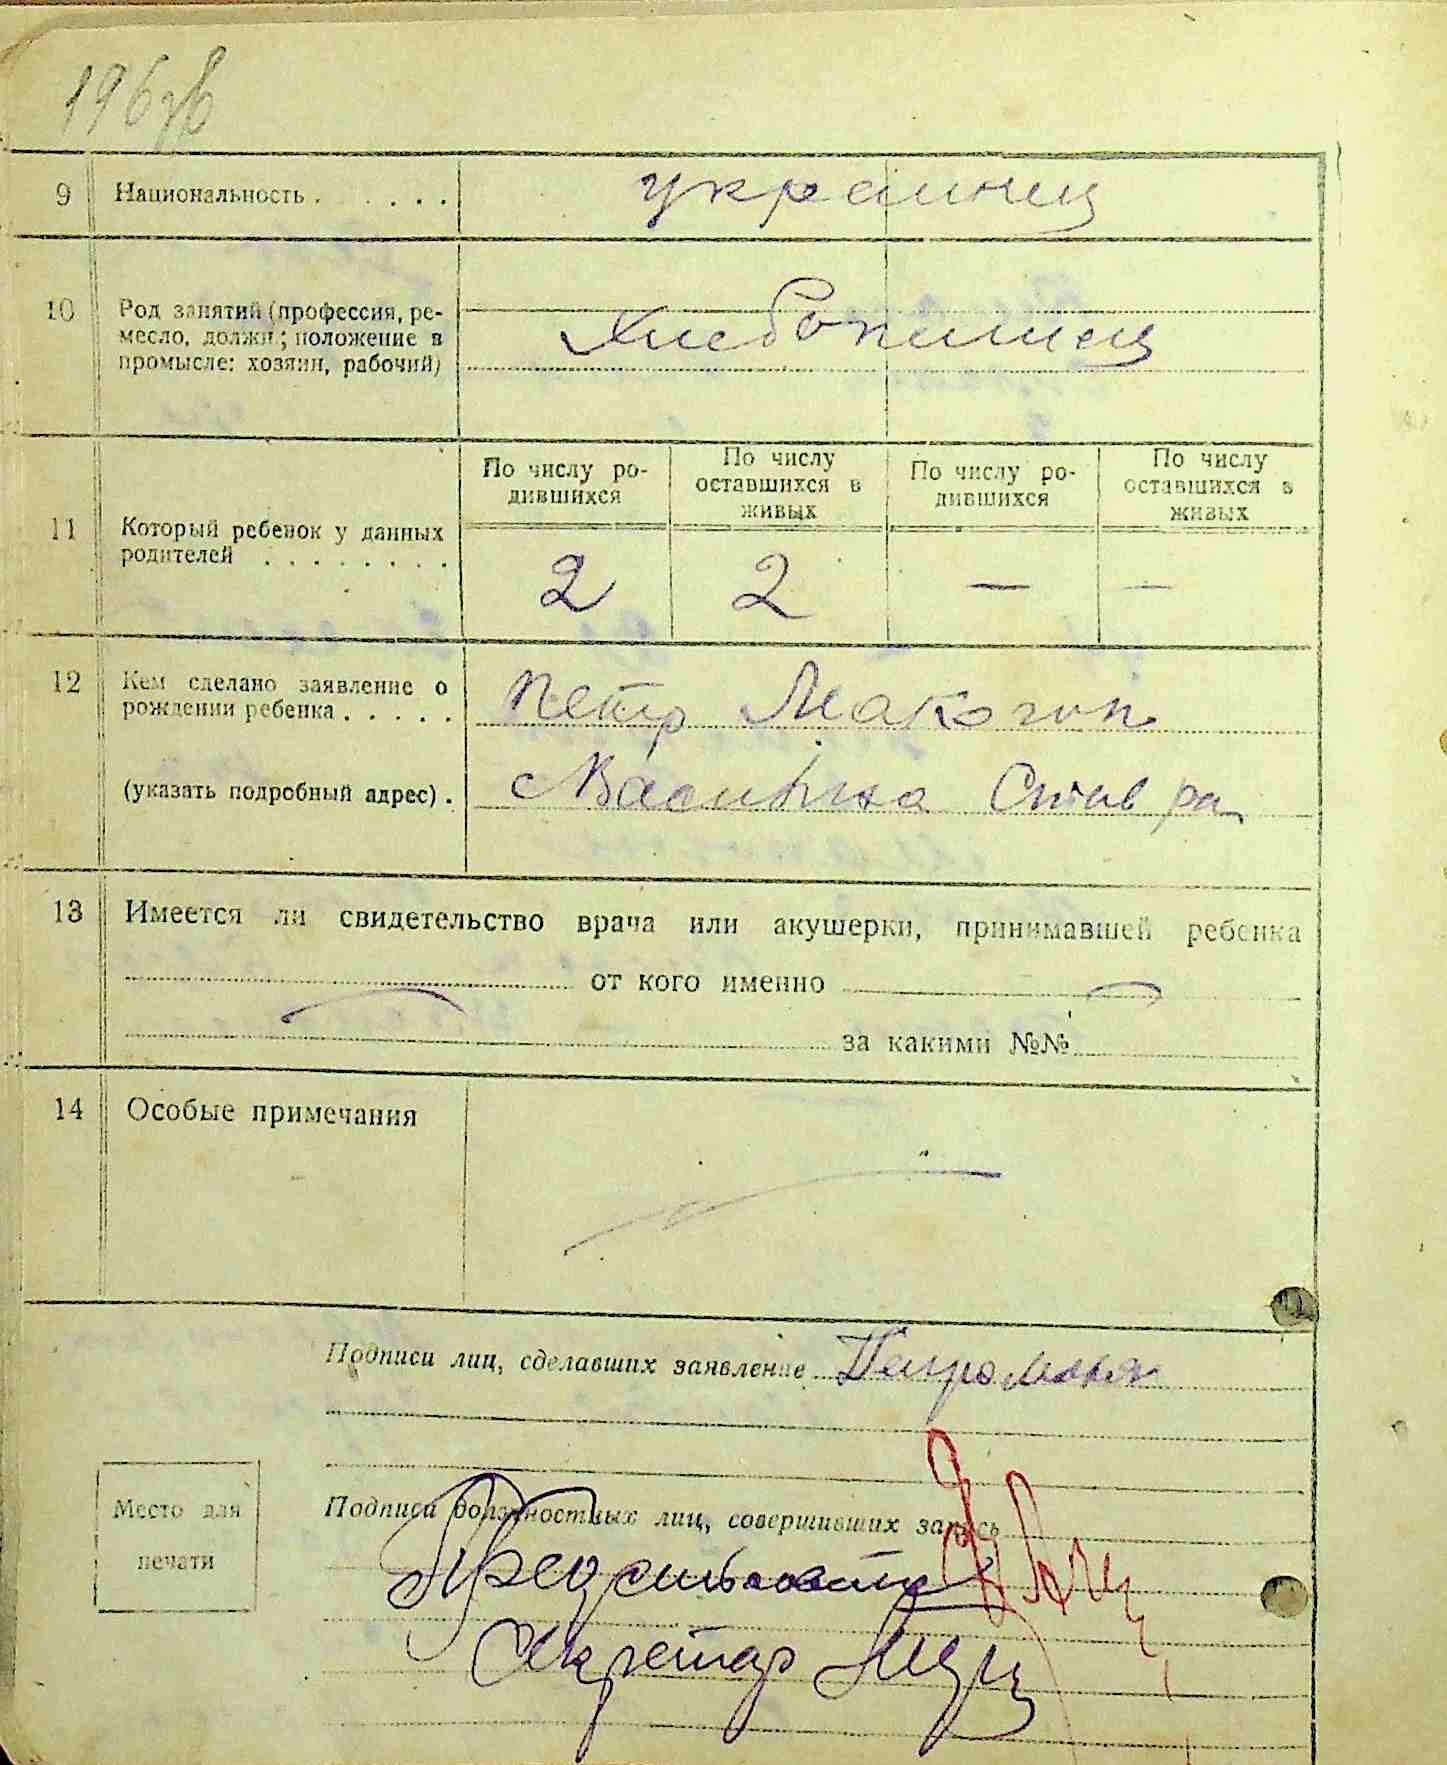 196 зв
9 Национальность . . . . . . украинец
10 Род занятий (профессия, ре-
месло, должн.; положение в
промысле: хозяин, рабочий)
Хлебопашец
По числу ро-
дившихся
По числу
оставшихся в
живых
По числу ро-
дившихся
По числу
оставшихся в
живых
11 Который ребенок у данных
родителей . . . . . . . .
2 2 — —
12 Кем сделано заявление о
рождении ребенка . . . . .
Петр Макогон
(указать подробный адрес) .
с Васильевка Став ра
13 Имеется ли свидетельство врача или акушерки, принимавшей ребенка
от кого именно
за какими №№
14 Особые примечания
Подписи лиц, сделавших заявление Петро
Место для
печати
Подписи должностных лиц, совершивших запись
Пред сельсовета
Секретар